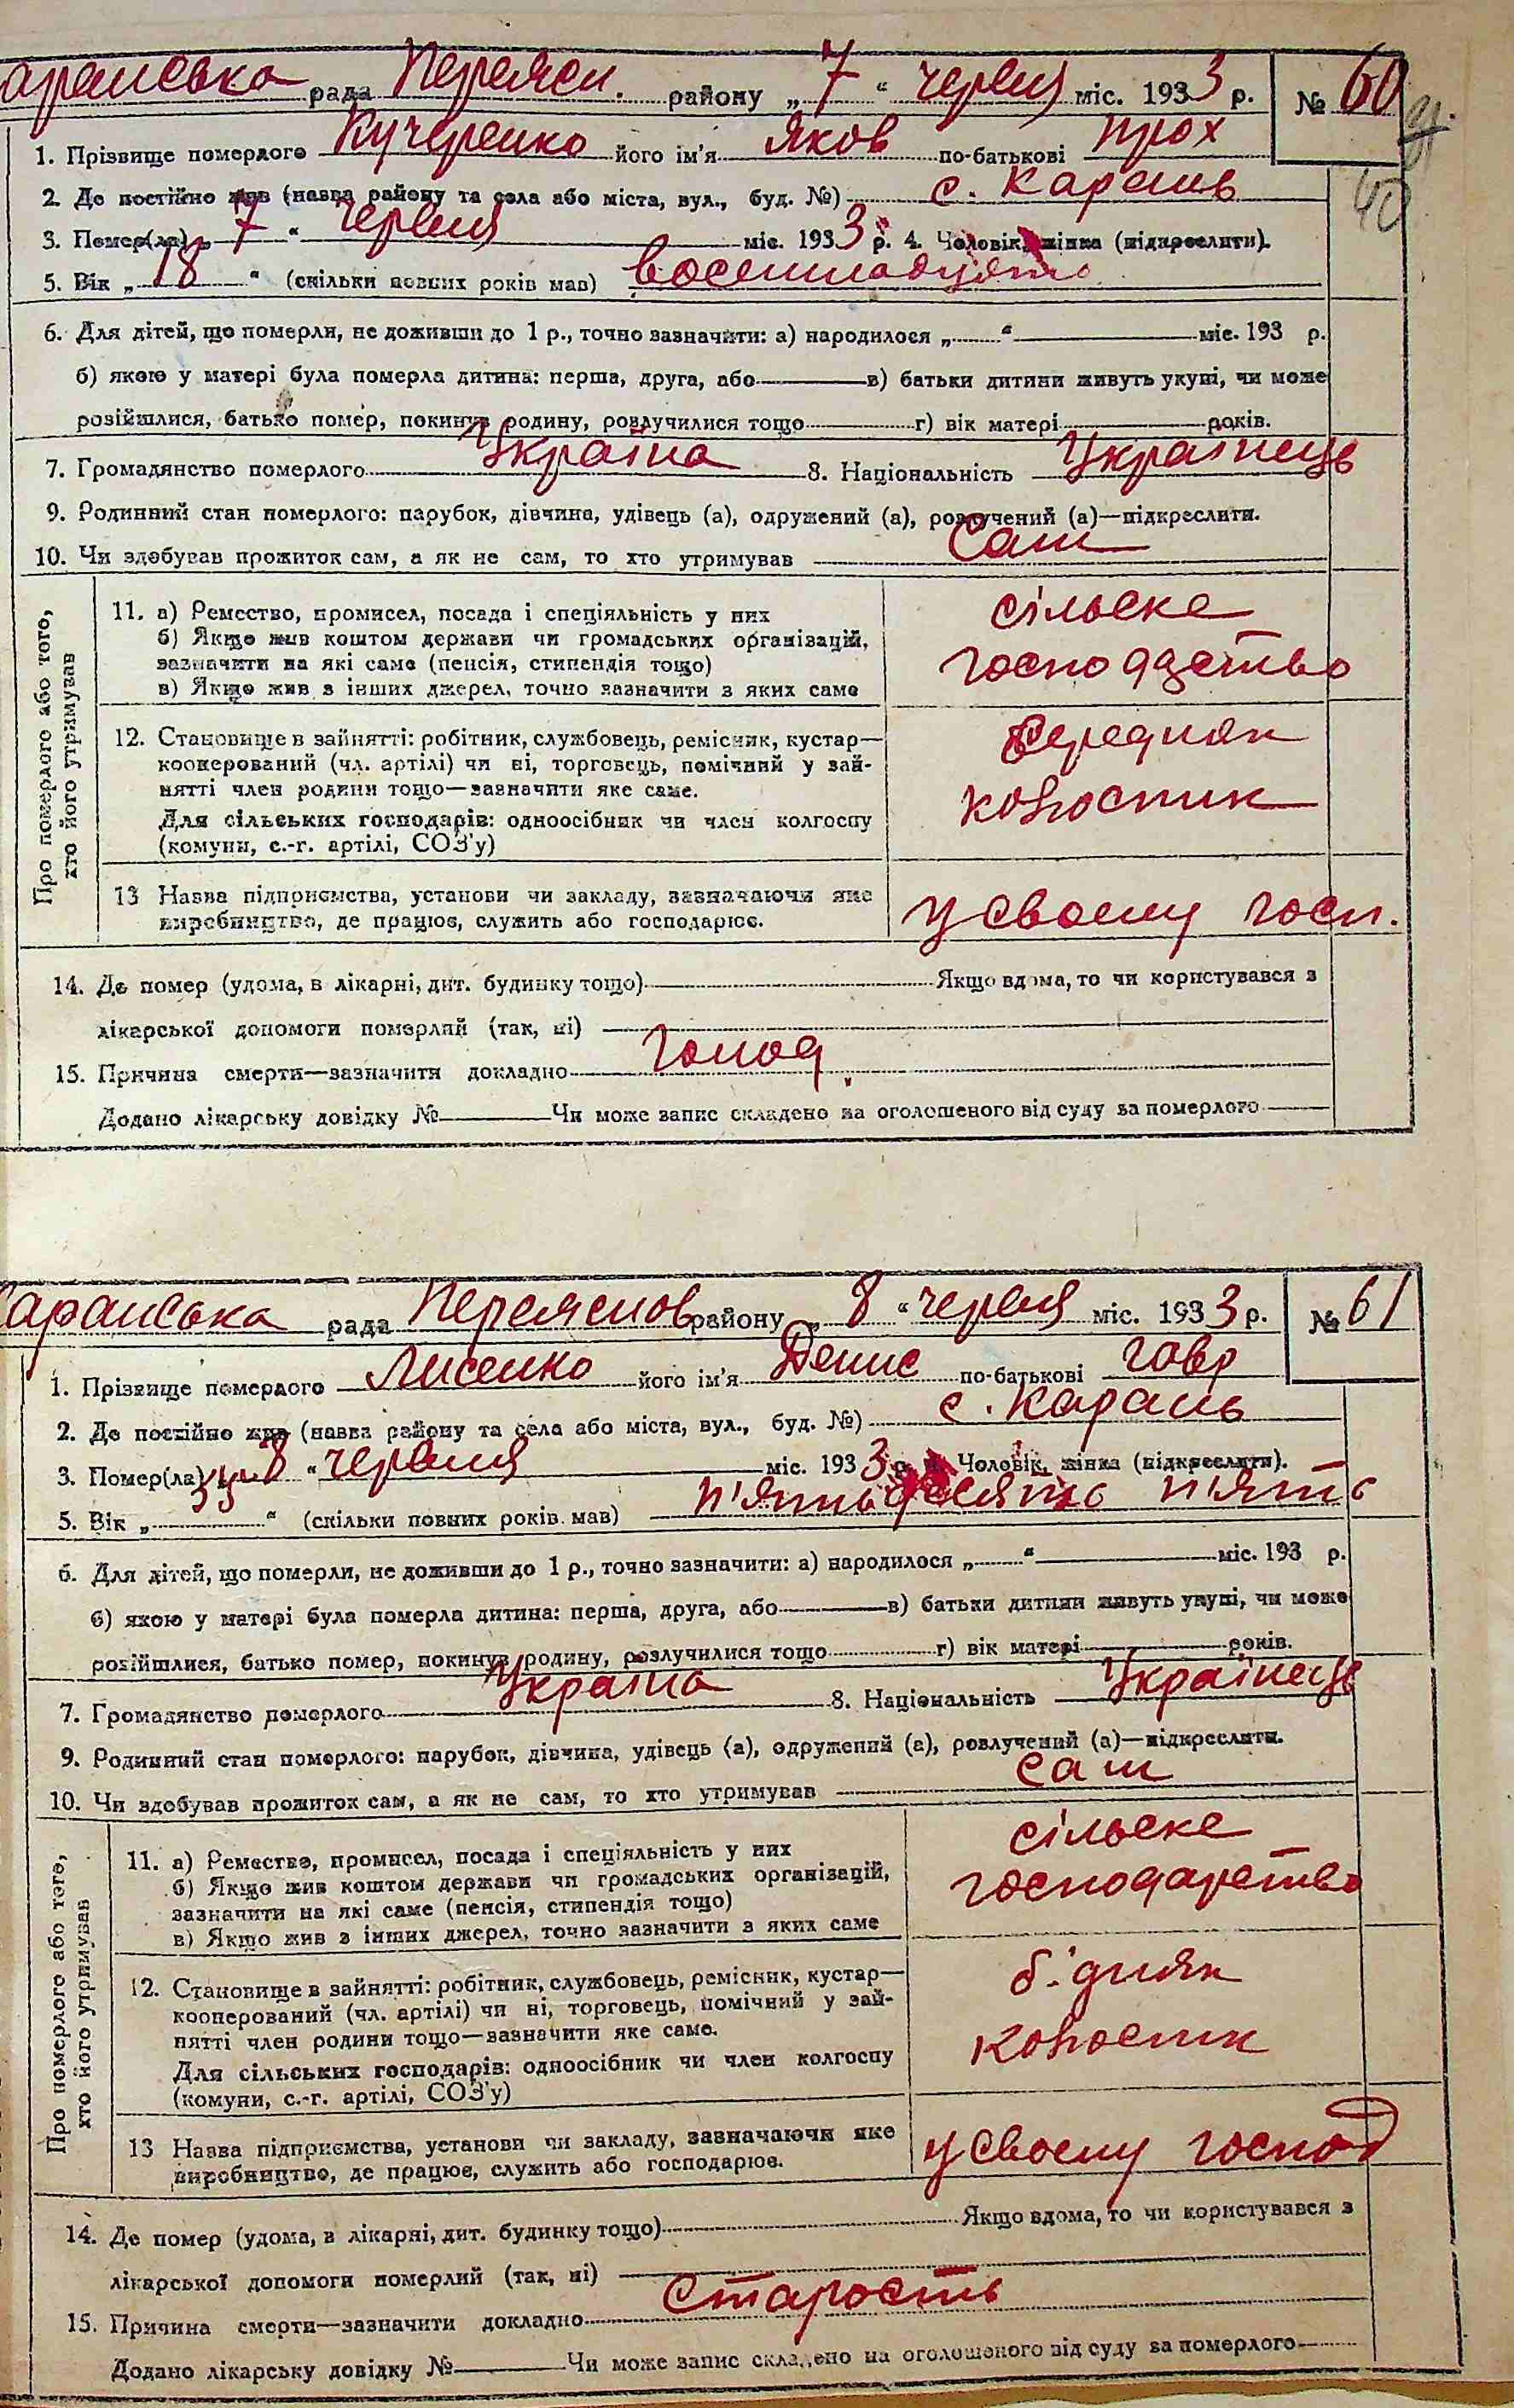 аранська рада Переясн. району „ 7 “ червня міс. 1933 р. № 60
1. Прізвище померлого Кучеренко його ім'я Яков по-батькові Прох
40
2. Де постійно жив (назва району та села або міста, вул., буд. №) с. Карань
3. Помер(ла) „ 7 “ червня міс. 1933 р. 4. Чоловік, жінка (підкреслити).
5. Вік „ 18 “ (скільки повних років мав) восемнадцять
6. Для дітей, що померли, не доживши до 1 р., точно зазначити: а) народилося „ “ міс. 193 р.
б) якою у матері була померла дитина: перша, друга, або в) батьки дитини живуть укупі, чи може
розійшлися, батько помер, покинув родину, розлучилися тощо г) вік матері років.
7. Громадянство померлого Україна 8. Національність Українець
9. Родинний стан померлого: парубок, дівчина, удівець (а), одружений (а), розлучений (а)—підкреслити.
10. Чи здобував прожиток сам, а як не сам, то хто утримував Сам
Про померлого або того, хто його утримував
11. а) Ремество, промисел, посада і спеціяльність у них
б) Якщо жив коштом держави чи громадських організацій,
зазначити на які саме (пенсія, стипендія тощо)
в) Якщо жив з інших джерел, точно зазначити з яких саме
сільске
господзство
12. Становище в зайнятті: робітник, службовець, ремісник, кустар—
кооперований (чл. артілі) чи ні, торговець, помічний у зай-
нятті член родини тощо—зазначити яке саме.
Для сільських господарів: одноосібник чи член колгоспу
(комуни, с.-г. артілі, СОЗ'у)
Середняк
колгоспник
13 Назва підприємства, установи чи закладу, зазначаючи яке
виробництво, де працює, служить або господарює.
у своему госп.
14. Де помер (удома, в лікарні, дит. будинку тощо) Якщо вдома, то чи користувався з
лікарської допомоги померлий (так, ні)
15. Причина смерти—зазначити докладно Голод
Додано лікарську довідку № Чи може запис складено на оголошеного від суду за померлого
Каранська рада Переяснов району „ 8 “ червня міс. 1933 р. № 61
1. Прізвище померлого Лисенко його ім'я Денис по-батькові Гавр
2. Де постійно жив (назва району та села або міста, вул., буд. №) с. Карань
3. Помер(ла) „ 8 “ червня міс. 1933 р. 4. Чоловік, жінка (підкреслити).
5. Вік „ 55 “ (скільки повних років мав) п'ятьдесять п'ять
6. Для дітей, що померли, не доживши до 1 р., точно зазначити: а) народилося „ “ міс. 193 р.
б) якою у матері була померла дитина: перша, друга, або в) батьки дитини живуть укупі, чи може
розійшлися, батько помер, покинув родину, розлучилися тощо г) вік матері років.
7. Громадянство померлого Україна 8. Національність Українець
9. Родинний стан померлого: парубок, дівчина, удівець (а), одружений (а), розлучений (а)—підкреслити.
10. Чи здобував прожиток сам, а як не сам, то хто утримував сам
Про померлого або того, хто його утримував
11. а) Ремество, промисел, посада і спеціяльність у них
б) Якщо жив коштом держави чи громадських організацій,
зазначити на які саме (пенсія, стипендія тощо)
в) Якщо жив з інших джерел, точно зазначити з яких саме
сільске
господарство
12. Становище в зайнятті: робітник, службовець, ремісник, кустар—
кооперований (чл. артілі) чи ні, торговець, помічний у зай-
нятті член родини тощо—зазначити яке саме.
Для сільських господарів: одноосібник чи член колгоспу
(комуни, с.-г. артілі, СОЗ'у)
бідняк
колгоспник
13 Назва підприємства, установи чи закладу, зазначаючи яке
виробництво, де працює, служить або господарює.
у своему господ
14. Де помер (удома, в лікарні, дит. будинку тощо) Якщо вдома, то чи користувався з
лікарської допомоги померлий (так, ні)
15. Причина смерти—зазначити докладно старость
Додано лікарську довідку № Чи може запис складено на оголошеного від суду за померлого